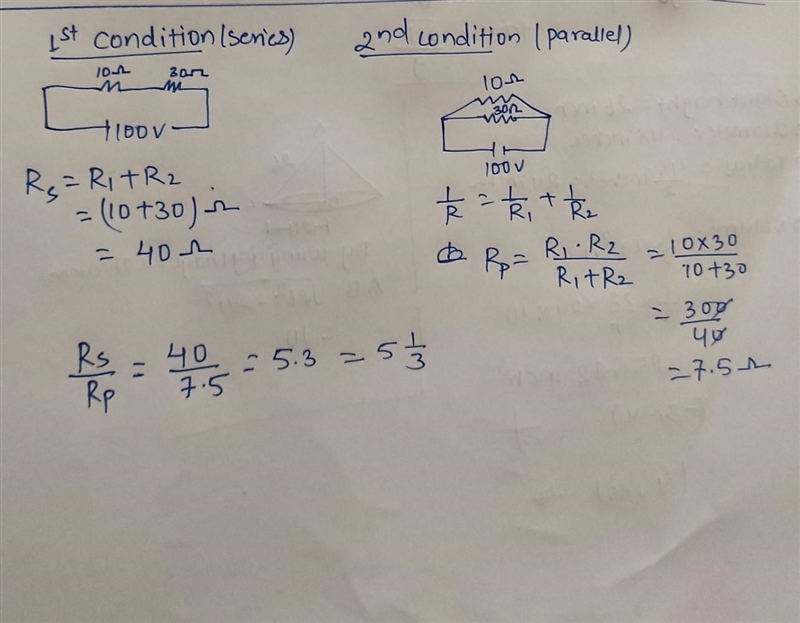 1st condition (series)
10Ω 30Ω
100V
Rs = R1 + R2
= (10+30) Ω
= 40 Ω
2nd condition (parallel)
10Ω
30Ω
100V
1/R = 1/R1 + 1/R2
Rp = R1 · R2 / R1 + R2 = 10×30 / 10+30
= 300/40
= 7.5 Ω
Rs/Rp = 40/7.5 = 5.3 = 5 1/3